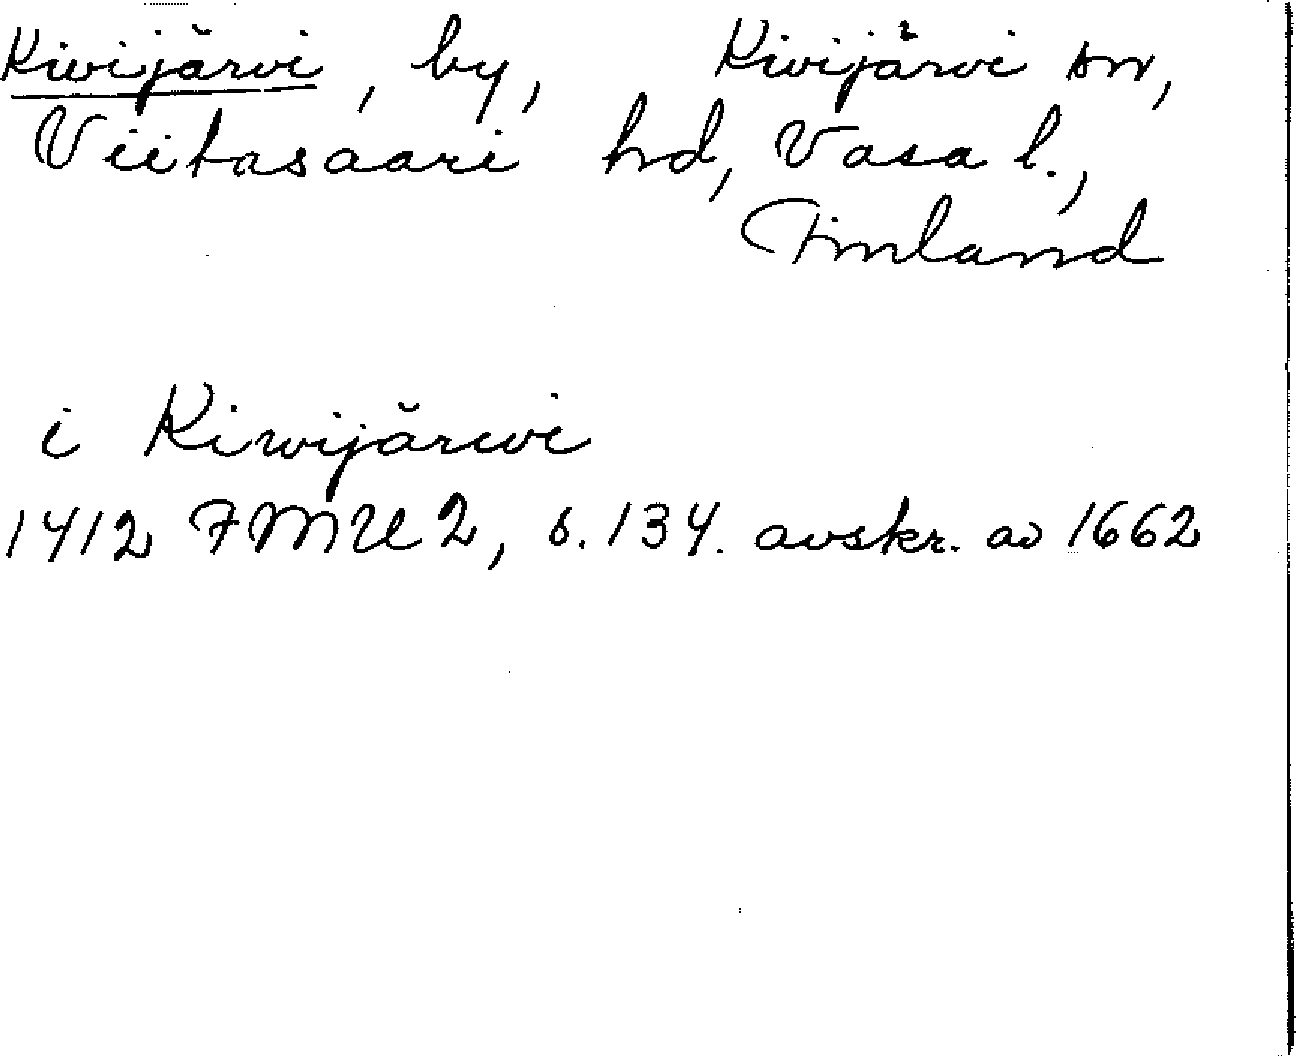 Kivijärvi, by, Kivijärvi sn,
Viitasaari hd, Vasa l.,
Finland
i Kiwijärwi
1412 FMU 2, s. 134. avskr. av 1662